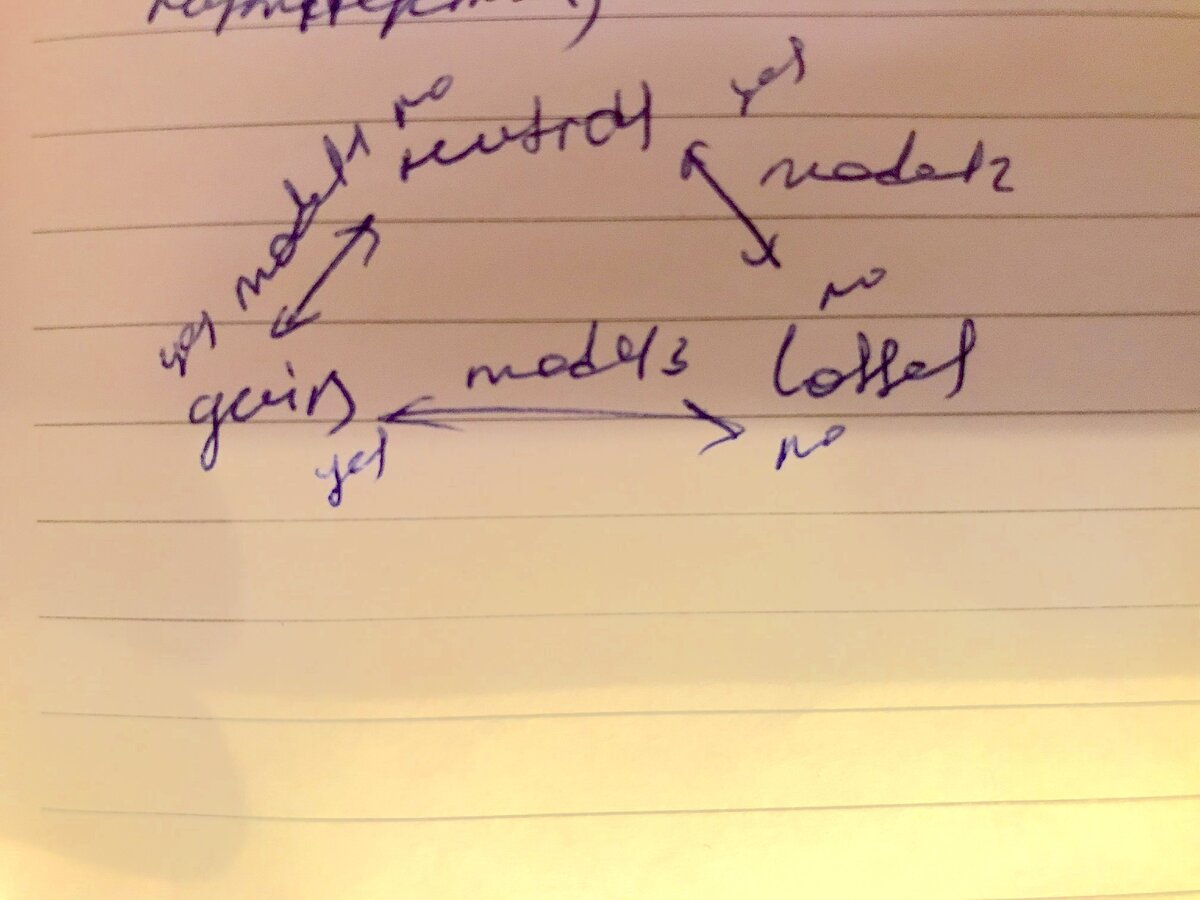 no
yes
neutral
model1
model2
yes
no
gain
model3
losses
yes
no